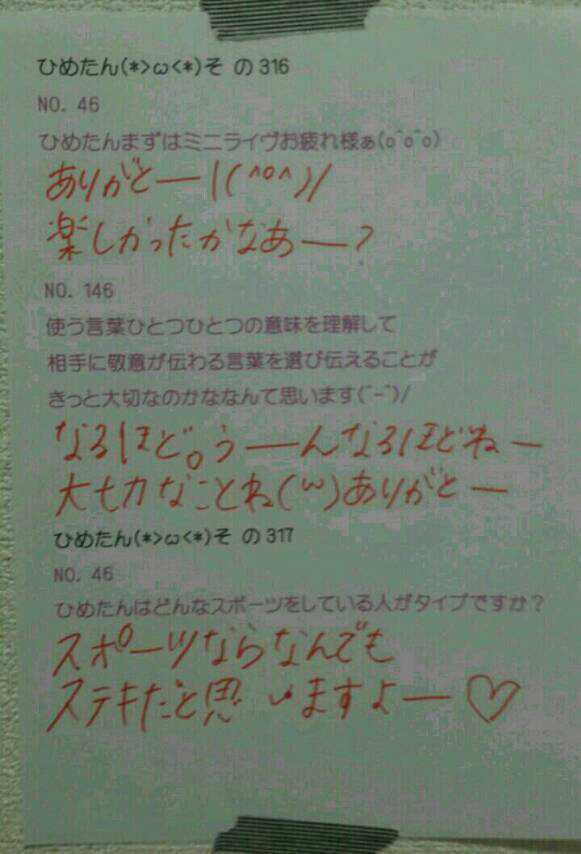 ひめたん(*>ω<*)そ の316
NO. 46
ひめたんまずはミニライヴお疲れ様ぁ(o^o^o)
ありがとー\(^o^)/
楽しかったかなあー?
NO. 146
使う言葉ひとつひとつの意味を理解して
相手に敬意が伝わる言葉を選び伝えることが
きっと大切なのかななんて思います(^-^)/
なるほど。うーんなるほどねー
大切なことね(ω)ありがとー
ひめたん(*>ω<*)そ の317
NO. 46
ひめたんはどんなスポーツをしている人がタイプですか?
スポーツならなんでも
ステキだと思いますよー♡